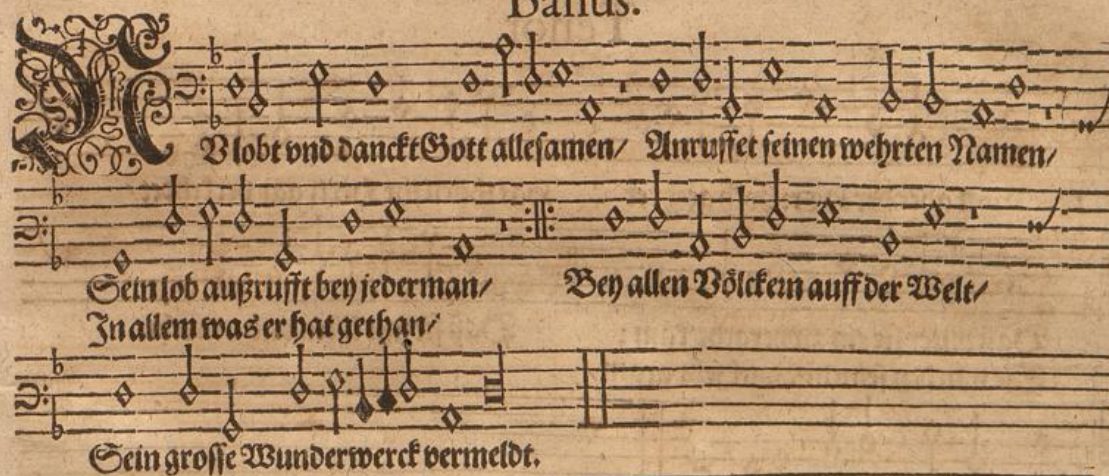 Bassus.
NVlobt vnd danckt Gott allesamen/ Anruffet seinen wehrten Namen/
Sein lob außrufft bey jederman/ Bey allen Völckern auff der Welt/
In allem was er hat gethan/
Sein grosse Wunderwerck vermeldt.